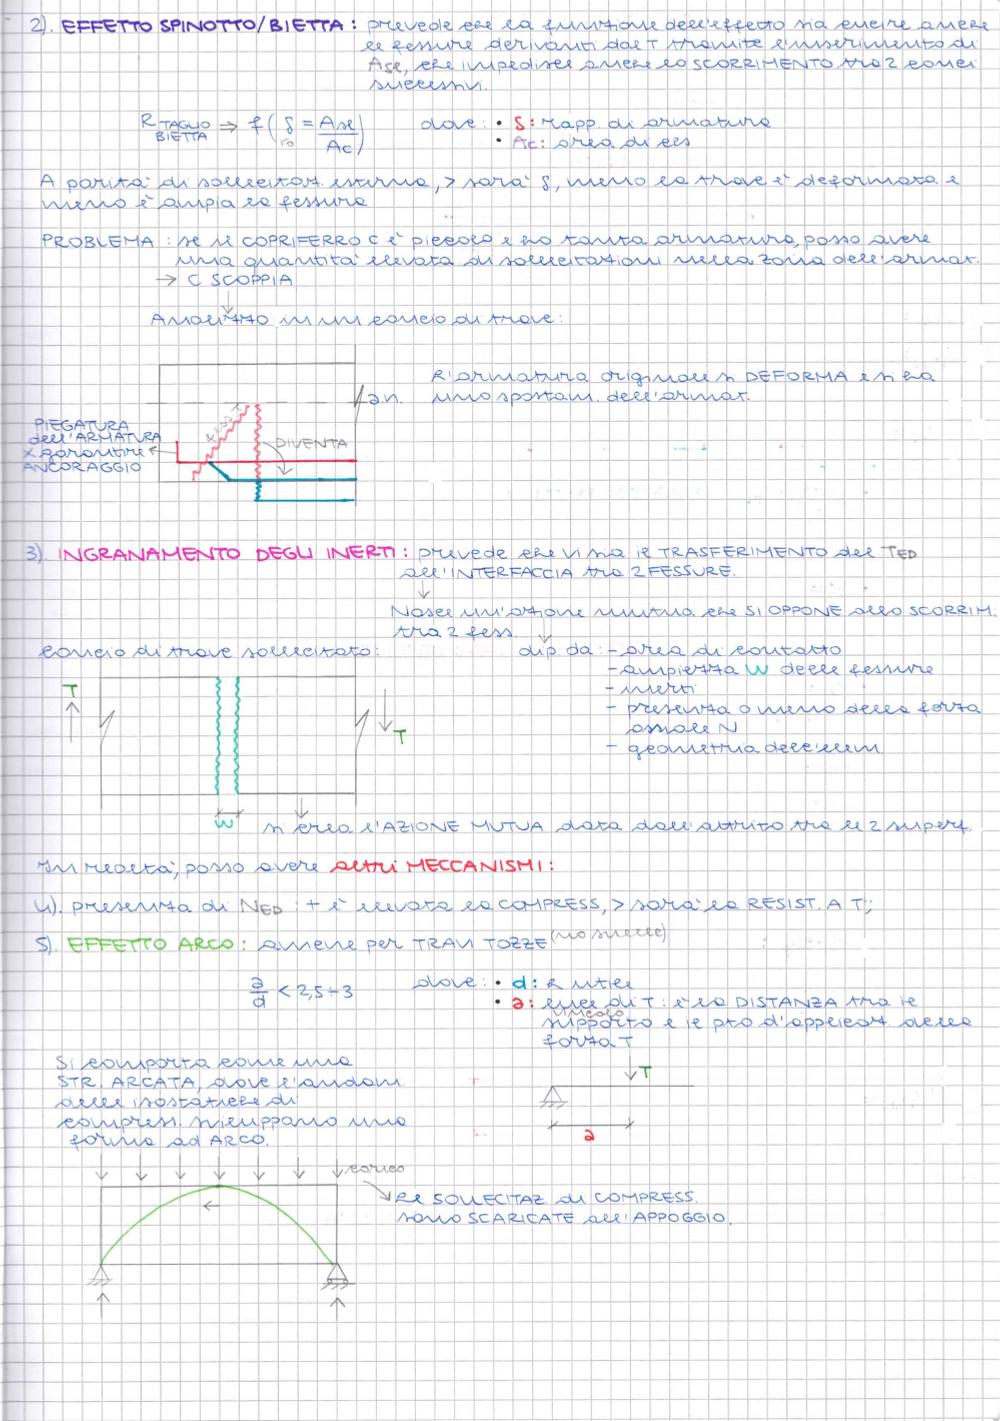 2). EFFETTO SPINOTTO/BIETTA : prevede che la funzione dell'effetto sia cucire anche
le fessure derivanti dal T tramite l'inserimento di
Ase, che impedisce anche lo SCORRIMENTO tra 2 conci
successivi.
R TAGLIO BIETTA ⇒ f ( δ = Ase / Ac ) dove: • δ: rapp. di armatura
ro • Ac: area di cls
A parità di sollecitaz. esterna, > sarà δ, meno la trave è deformata e
meno è ampia la fessura
PROBLEMA : se il COPRIFERRO C è piccolo e ho tanta armatura, posso avere
una quantità elevata di sollecitazioni nella zona dell'armat.
→ C SCOPPIA
Analizzo in un concio di trave:
L'armatura originale si DEFORMA e si ha
a.n. uno spostam. dell'armat.
PIEGATURA
dell'ARMATURA
x garantire
ANCORAGGIO
DIVENTA
3) INGRANAMENTO DEGLI INERTI : prevede che vi sia il TRASFERIMENTO del TED
all'INTERFACCIA tra 2 FESSURE.
Nasce un'azione mutua che SI OPPONE allo SCORRIM.
tra 2 fess.
concio di trave sollecitato: dip da: - area di contatto
- ampiezza W delle fessure
- inerti
- presenza o meno della forza
assiale N
- geometria dell'elem
T
T
W
si crea l'AZIONE MUTUA data dall'attrito tra le 2 superf.
In realtà, posso avere altri MECCANISMI:
4). presenza di NED : + è elevata la COMPRESS, > sarà la RESIST. A T;
5). EFFETTO ARCO : avviene per TRAVI TOZZE (no snelle)
a/d < 2,5÷3 dove: • d: h utile
• a: luce di T: è la DISTANZA tra il
vincolo
supporto e il pto d'applicaz. della
forza T
Si comporta come una
STR. ARCATA, dove l'andam
delle isostatiche di
compress. sviluppano una
forma ad ARCO.
T
a
carico
le SOLLECITAZ di COMPRESS.
sono SCARICATE all'APPOGGIO.